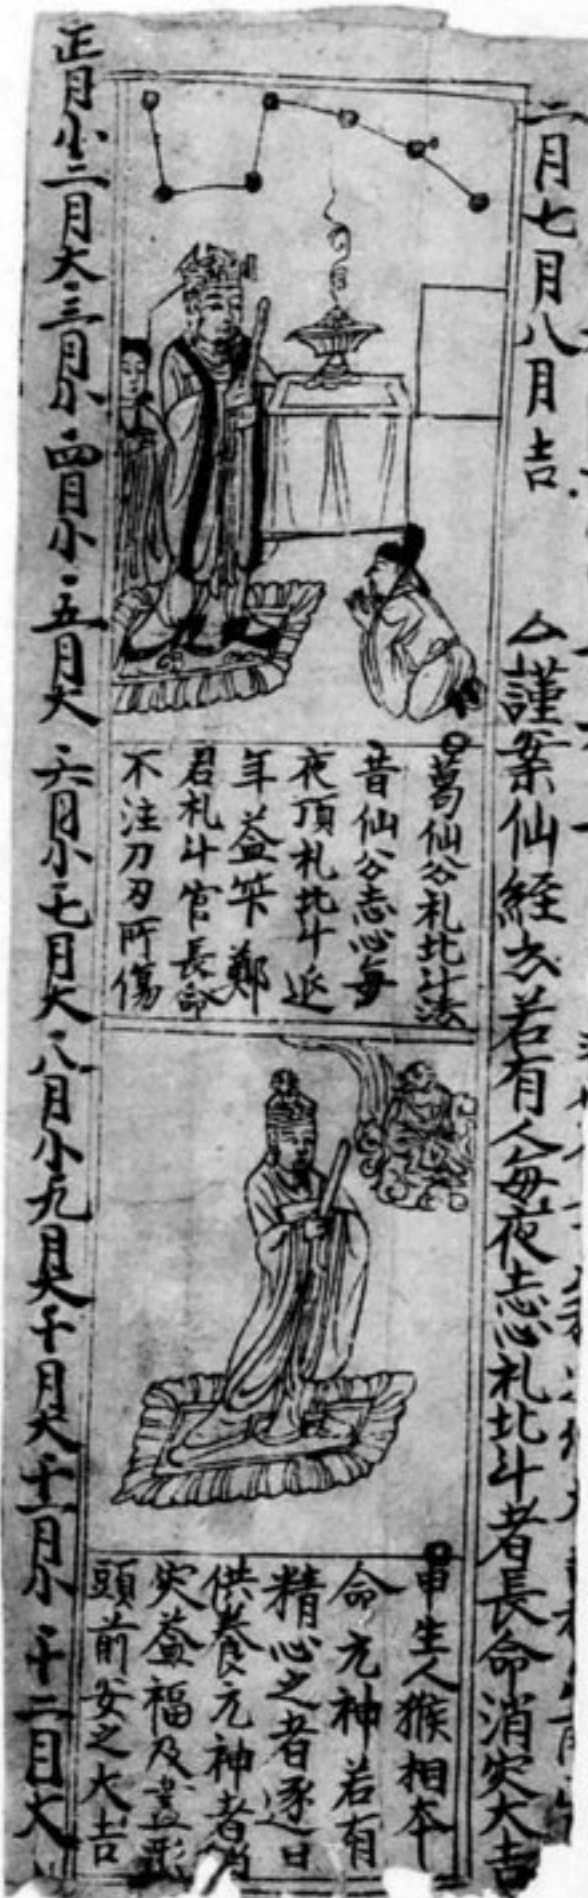 二月七月八月吉
謹案仙経云若有人每夜志心礼北斗者長命消災大吉
葛仙公礼北斗法
昔仙公志心每
夜頂礼北斗延
年益筭鄭
君礼斗官長命
不注刀刃所傷
申生人猴相本
命元神若有
精心之者逐日
供養元神者消
災益福及畫形
頭前安之大吉
正月小二月大三月小四月小五月大六月小七月大八月小九月大十月大十一月小十二月大